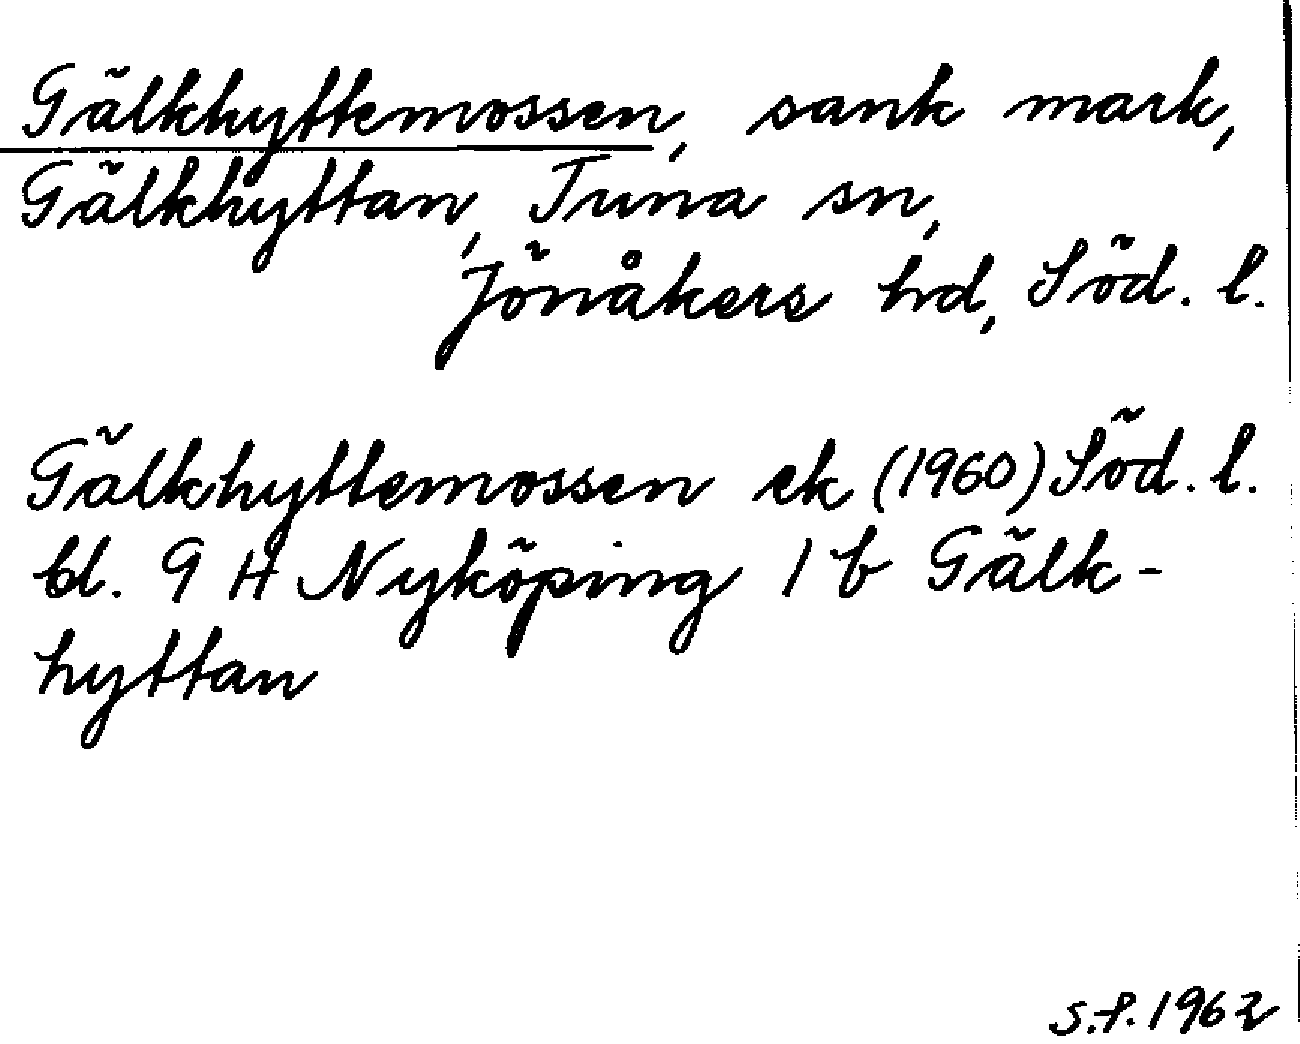 Gälkhyttemossen, sank mark,
Gälkhyttan, Tuna sn,
Jönåkers hd, Söd. l.
Gälkhyttemossen ek (1960) Söd. l.
bl. 9 H Nyköping 1 b Gälk-
hyttan
S.F. 1962